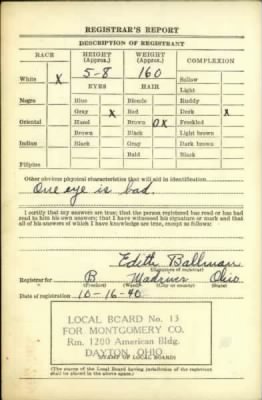 REGISTRAR'S REPORT
DESCRIPTION OF REGISTRANT
RACE HEIGHT (Approx.) WEIGHT (Approx.) COMPLEXION
White X 5-8 160 Sallow
EYES HAIR Light
Negro Blue Blonde Ruddy
Gray X Red Dark X
Oriental Hazel Brown OX Freckled
Brown Black Light brown
Indian Black Gray Dark brown
Bald Black
Filipino
Other obvious physical characteristics that will aid in identification
One eye is bad.
I certify that my answers are true; that the person registered has read or has had
read to him his own answers; that I have witnessed his signature or mark and that
all of his answers of which I have knowledge are true, except as follows:
Edith Ballman
(Signature of registrar)
Registrar for B Madriver Ohio
(Precinct) (Ward) (City or county) (State)
Date of registration 10-16-40
LOCAL BOARD No. 13
FOR MONTGOMERY CO.
Rm. 1200 American Bldg.
DAYTON, OHIO
(STAMP OF LOCAL BOARD)
(The stamp of the Local Board having jurisdiction of the registrant
shall be placed in the above space.)